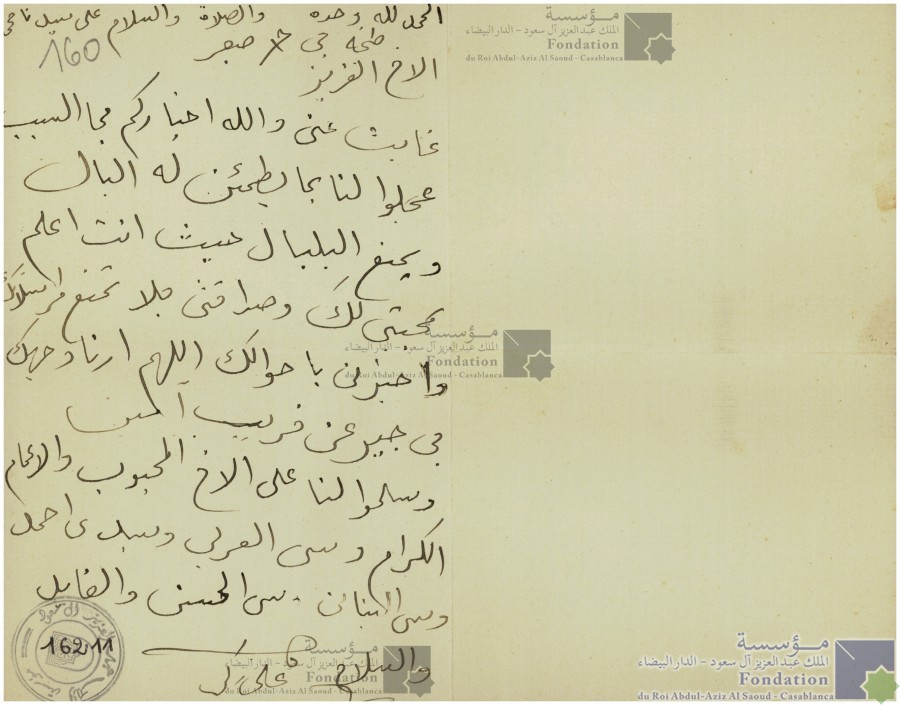 الحمد لله وحده والصلاة والسلام على سيدنا محمد
160
طنجة في صفر
الاخ العزيز
غابت عني والله اخباركم فما السبب
عجلوا لنا بما يطمئن له البال
ويمنع البلبال حيث انت اعلم
بمحبتي لك وصداقتي فلا تمنع من
واخبرني باحوالك اللهم ارنا وجهك
في خير عن قريب
وسلموا لنا على الاخ المحبوب والاعمام
الكرام وسي العربي وسيدي احمد
وسي البناني سي الحسن
والسلام
16211
مؤسسة
الملك عبد العزيز آل سعود - الدار البيضاء
Fondation
du Roi Abdul-Aziz Al Saoud - Casablanca
مؤسسة
الملك عبد العزيز آل سعود - الدار البيضاء
Fondation
du Roi Abdul-Aziz Al Saoud - Casablanca
مؤسسة
الملك عبد العزيز آل سعود - الدار البيضاء
Fondation
du Roi Abdul-Aziz Al Saoud - Casablanca
مؤسسة
الملك عبد العزيز آل سعود - الدار البيضاء
Fondation
du Roi Abdul-Aziz Al Saoud - Casablanca